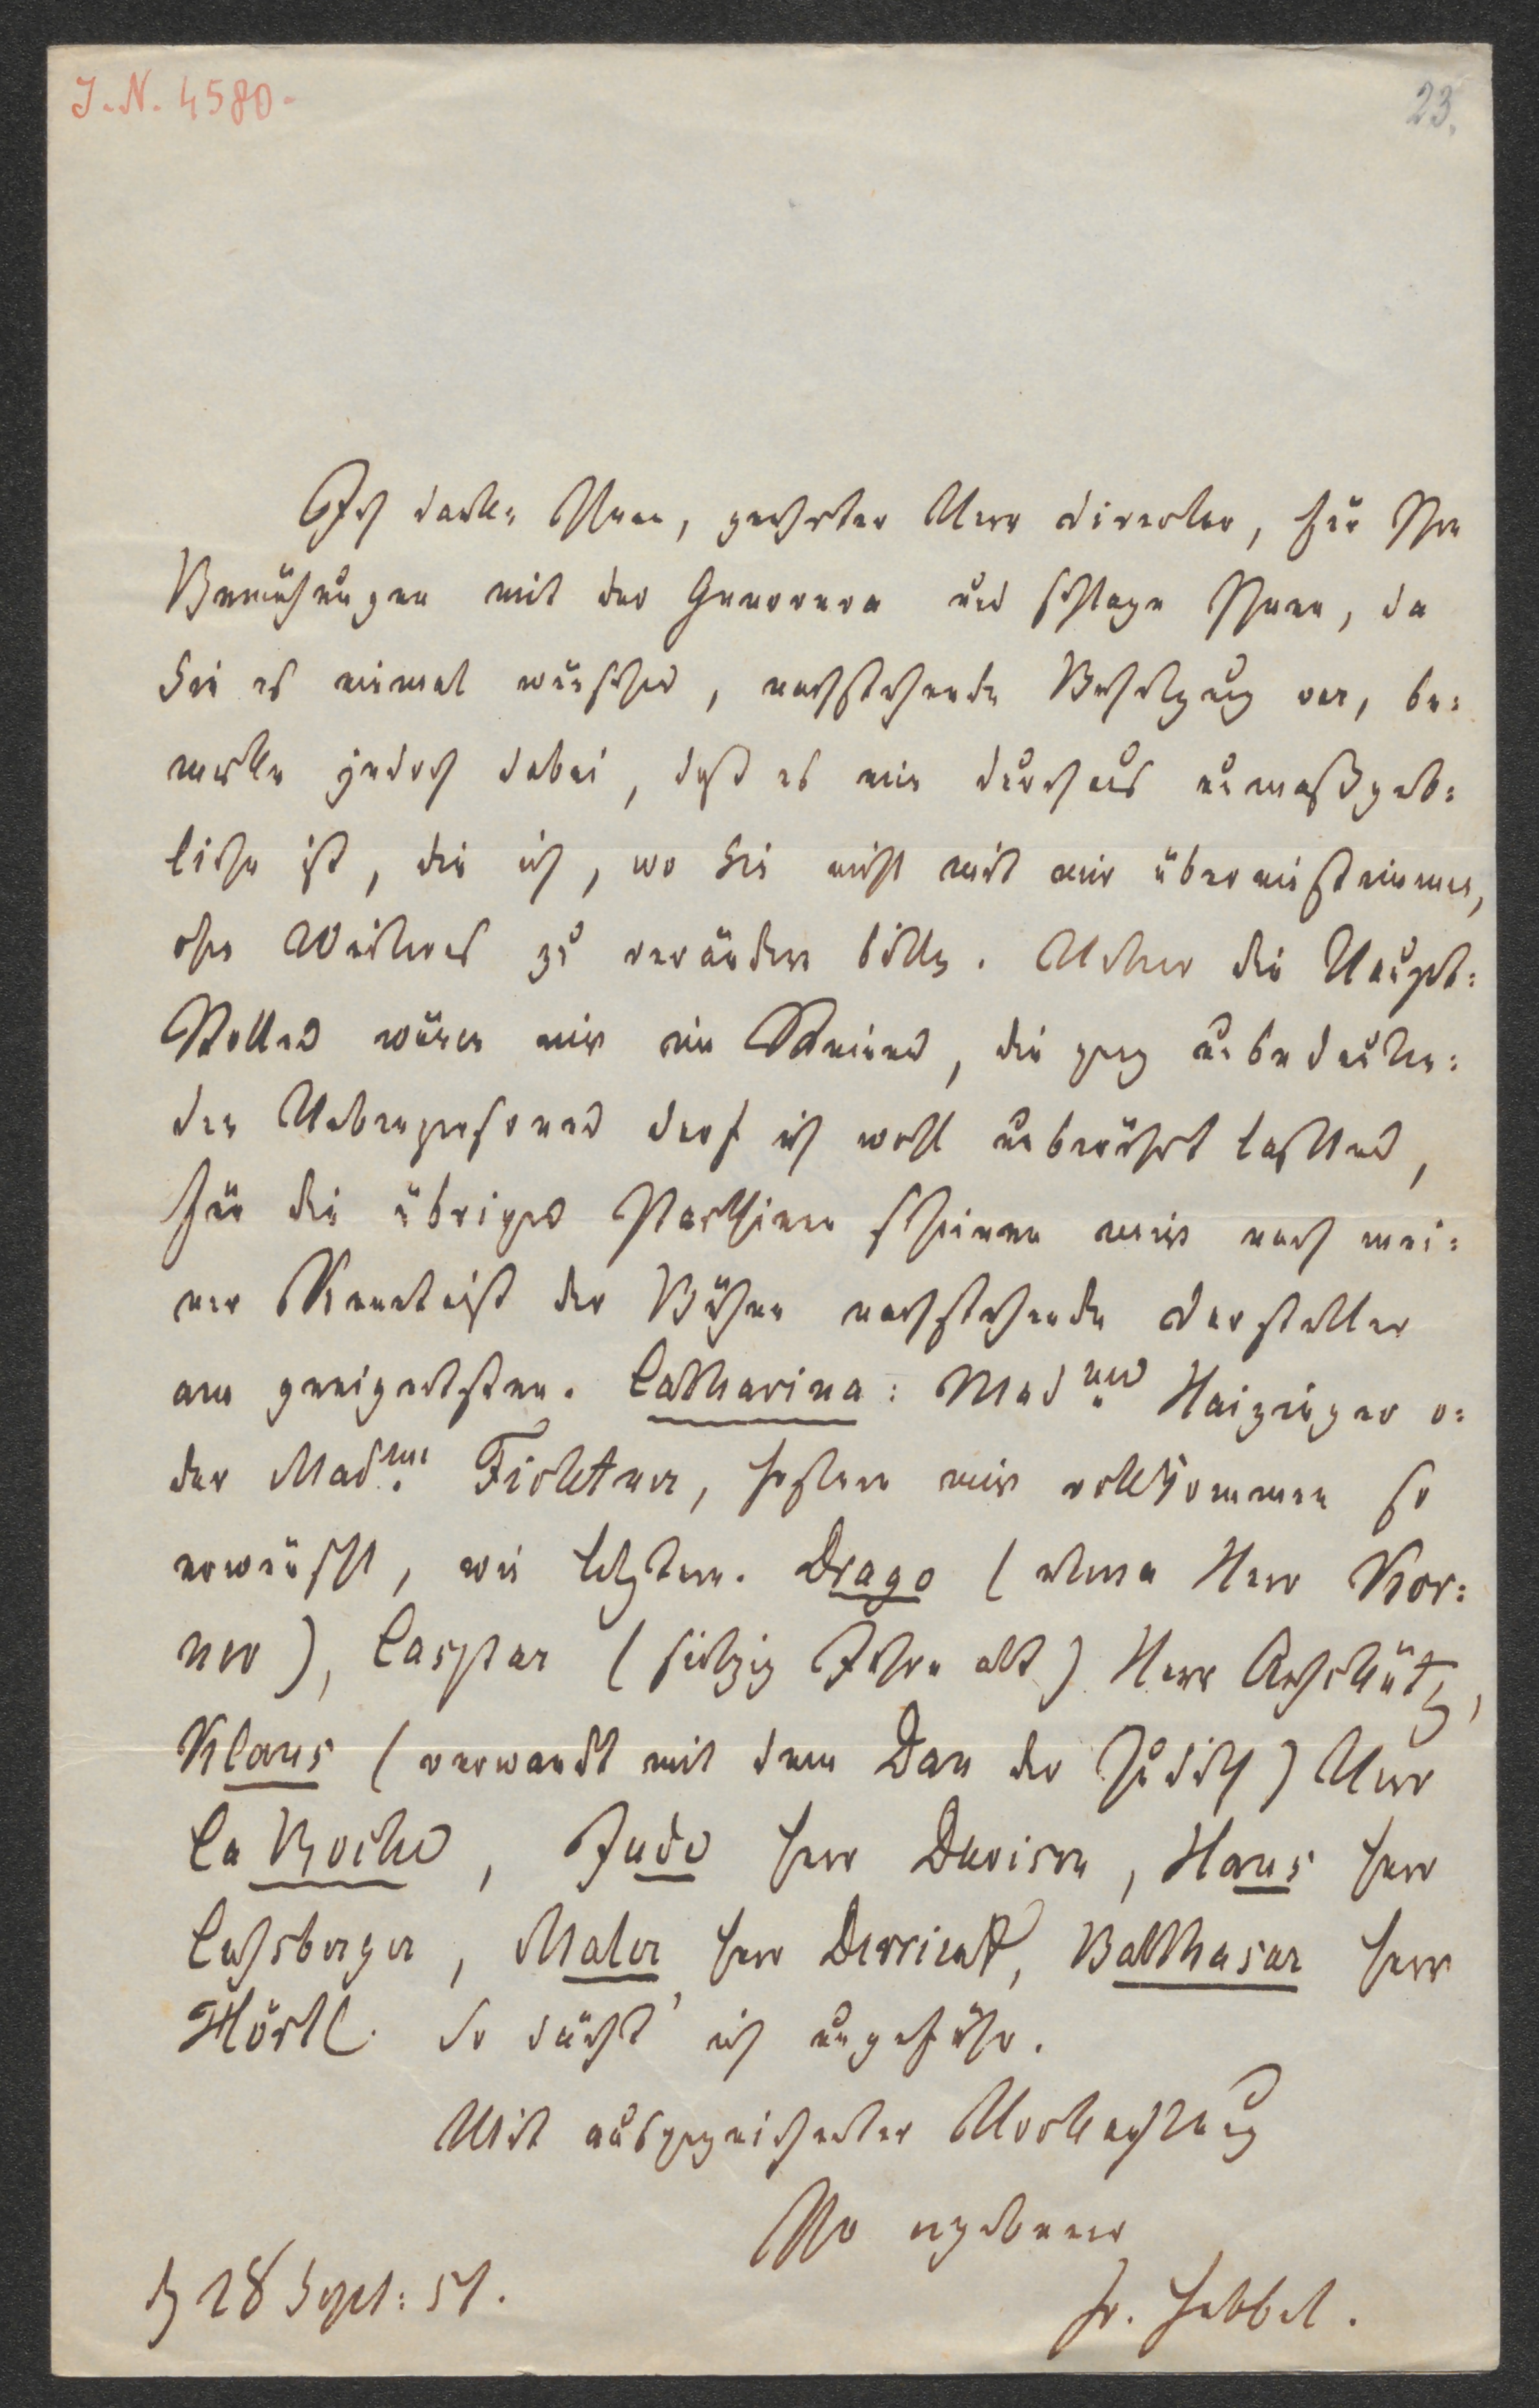 J. N. 4580.
23.
Ich danke Ihnen, geehrter Herr Director, für Ihre
Bemühungen mit der Genoveva und schlage Ihnen, da
Sie es einmal wünschen, nachstehende Besetzung vor, be=
merke jedoch dabei, daß es eine durchaus unmaßgeb=
liche ist, die ich, wo Sie nicht mit mir übereinstimmen,
ohne Weiteres zu verändern bitte. Ueber die Haupt=
Rollen wären wir im Reinen, die ganz unbedeuten=
den Nebenpersonen darf ich wohl unberührt lassen,
für die übrigen Parthieen scheinen mir nach mei=
ner Kenntniß der Bühne nachstehende Darsteller
am geeignetsten. Catharina: Madme Haizinger o=
der Madme Fichtner, erstere mir vollkommen so
erwünscht, wie letztere. Drago (etwa Herr Kor=
ner), Caspar (siebzig Jahre alt) Herr Anschütz,
Klaus (verwandt mit dem Dan der Judith) Herr
La Roche, Jude Herr Dawison, Hans Herr
Lußberger, Maler Herr Devrient, Balthasar Herr
Hörtl. So dächt' ich ungefähr.
Mit ausgezeichneter Hochachtung
Ihr ergebener
d 28 Sept: 51.
Fr. Hebbel.